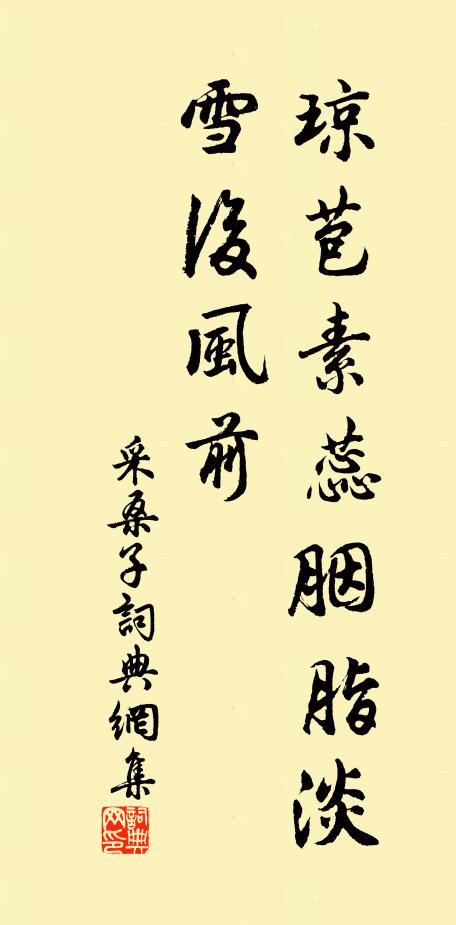 琼苞素蕊胭脂淡
雪後風前
采桑子詞典網集
詞典网印